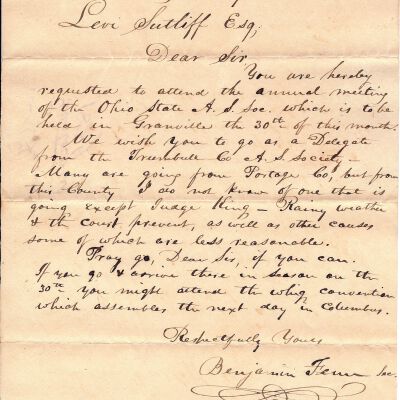 Levi Sutliff Esq;
Dear Sir,
You are hereby
requested to attend the annual meeting
of the Ohio State A. S. Soc. which is to be
held in Granville the 30th of this month.
We wish you to go as a Delegate
from the Trumbull Co A. S. Society—
Many are going from Portage Co, but from
this County I do not know of one that is
going except Judge King— Rainy weather
& the court prevent, as well as other causes
some of which are less reasonable.
Pray go, Dear Sir, if you can.
If you go & arrive there in season on the
30th you might attend the whig convention
which assembles the next day in Columbus.
Respectfully Yours
Benjamin Fenn Sec.